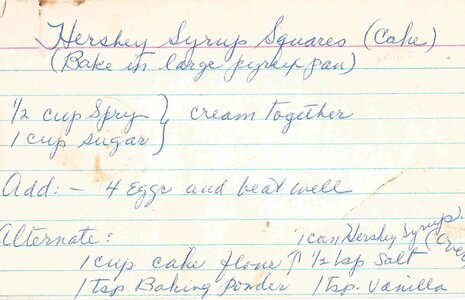 Hershey Syrup Squares (Cake)
(Bake in large pyrex pan)
1/2 cup Spry } cream together
1 cup sugar
Add: - 4 eggs and beat well
Alternate: 1 can Hershey Syrup (over
1 cup cake flour 1/2 tsp Salt
1 tsp Baking Powder 1 tsp. Vanilla